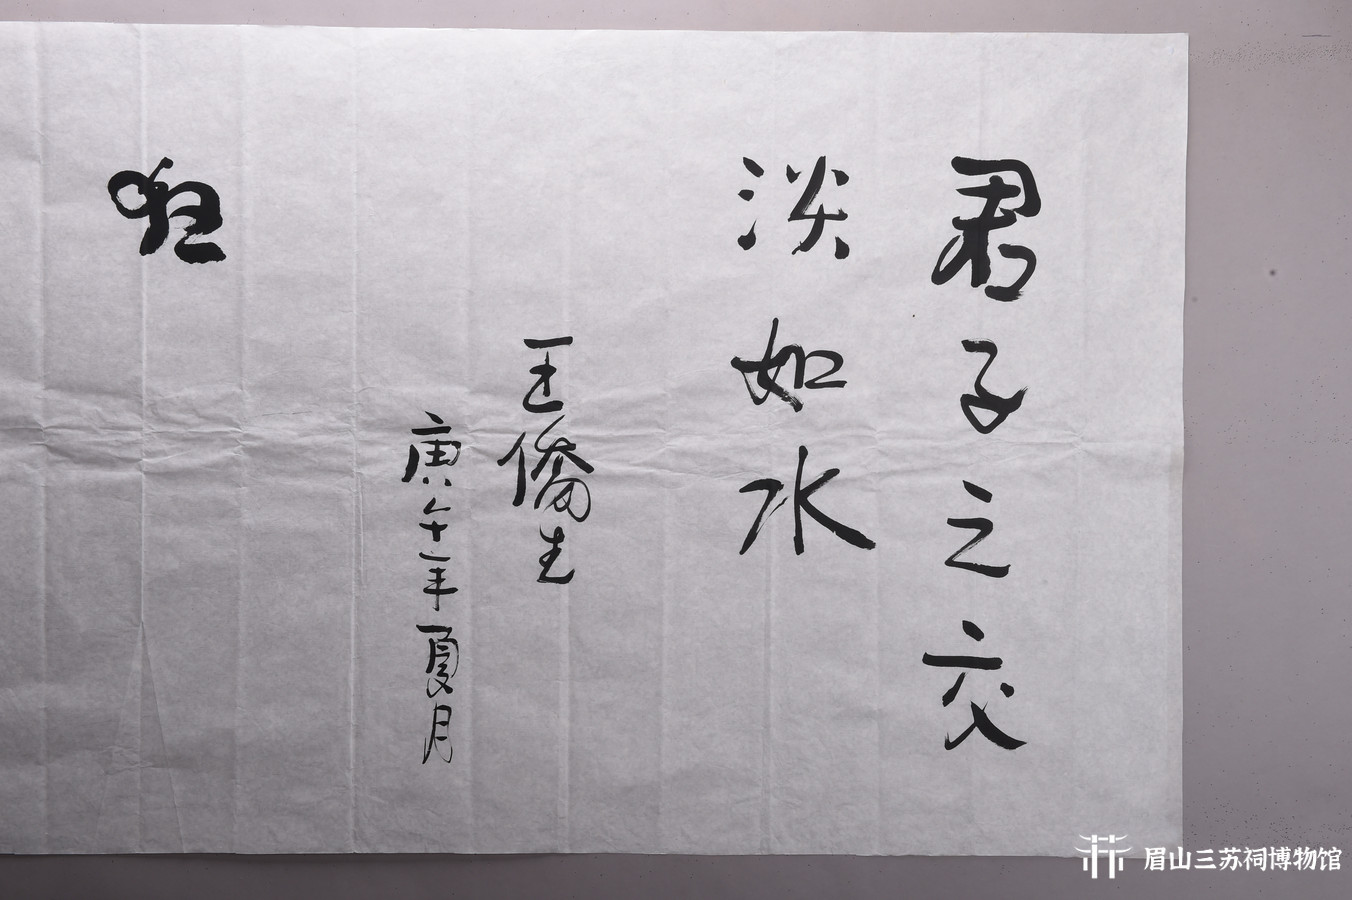 君子之交
淡如水
王僑生
庚午年夏月
眉山三苏祠博物馆